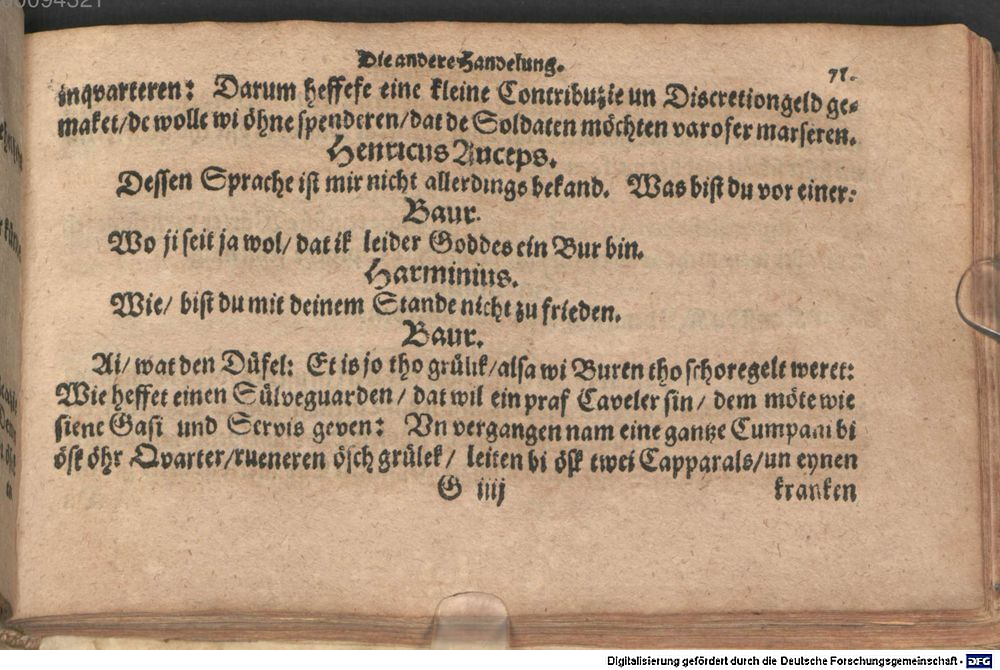 Die andere Handelung. 71.
inqvarteren: Darum heffefe eine kleine Contribuzie un Discretiongeld ge-
maket/de wolle wi öhne spenderen/dat de Soldaten möchten varofer marseren.
Henricus Auceps.
Dessen Sprache ist mir nicht allerdings bekand. Was bist du vor einer:
Baur.
Wo ji seit ja wol/ dat ik leider Goddes ein Bur bin.
Harminius.
Wie/ bist du mit deinem Stande nicht zu frieden.
Baur.
Ai/ wat den Düfel: Et is jo tho grülik/alsa wi Buren tho schoregelt weret:
Wie heffet einen Sülveguarden/ dat wil ein praf Caveler sin/ dem möte wie
siene Gasi und Servis geven: Un vergangen nam eine gantze Cumpani bi
ösk öhr Qvarter/rueneren ösch grülek/ leiten bi ösk twei Capparals/un eynen
G iiij kranken
Digitalisierung gefördert durch die Deutsche Forschungsgemeinschaft - DFG